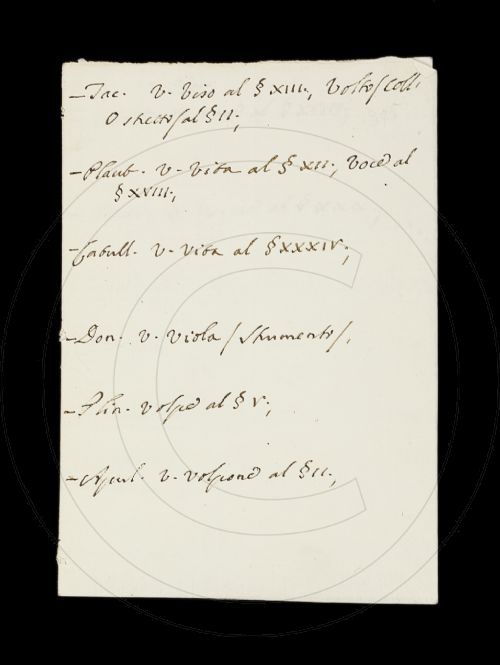 – Tac. v. viso al § XIII., volto / coll'
O stretto / al § II;
– Plaut. v. vita al § XII; voce al
§ XVIII;
– Catull. v. vita al § XXXIV;
– Don. v. viola / Strumento /.
– Plin. volpe al § V;
– Apul. v. volpone al § II;